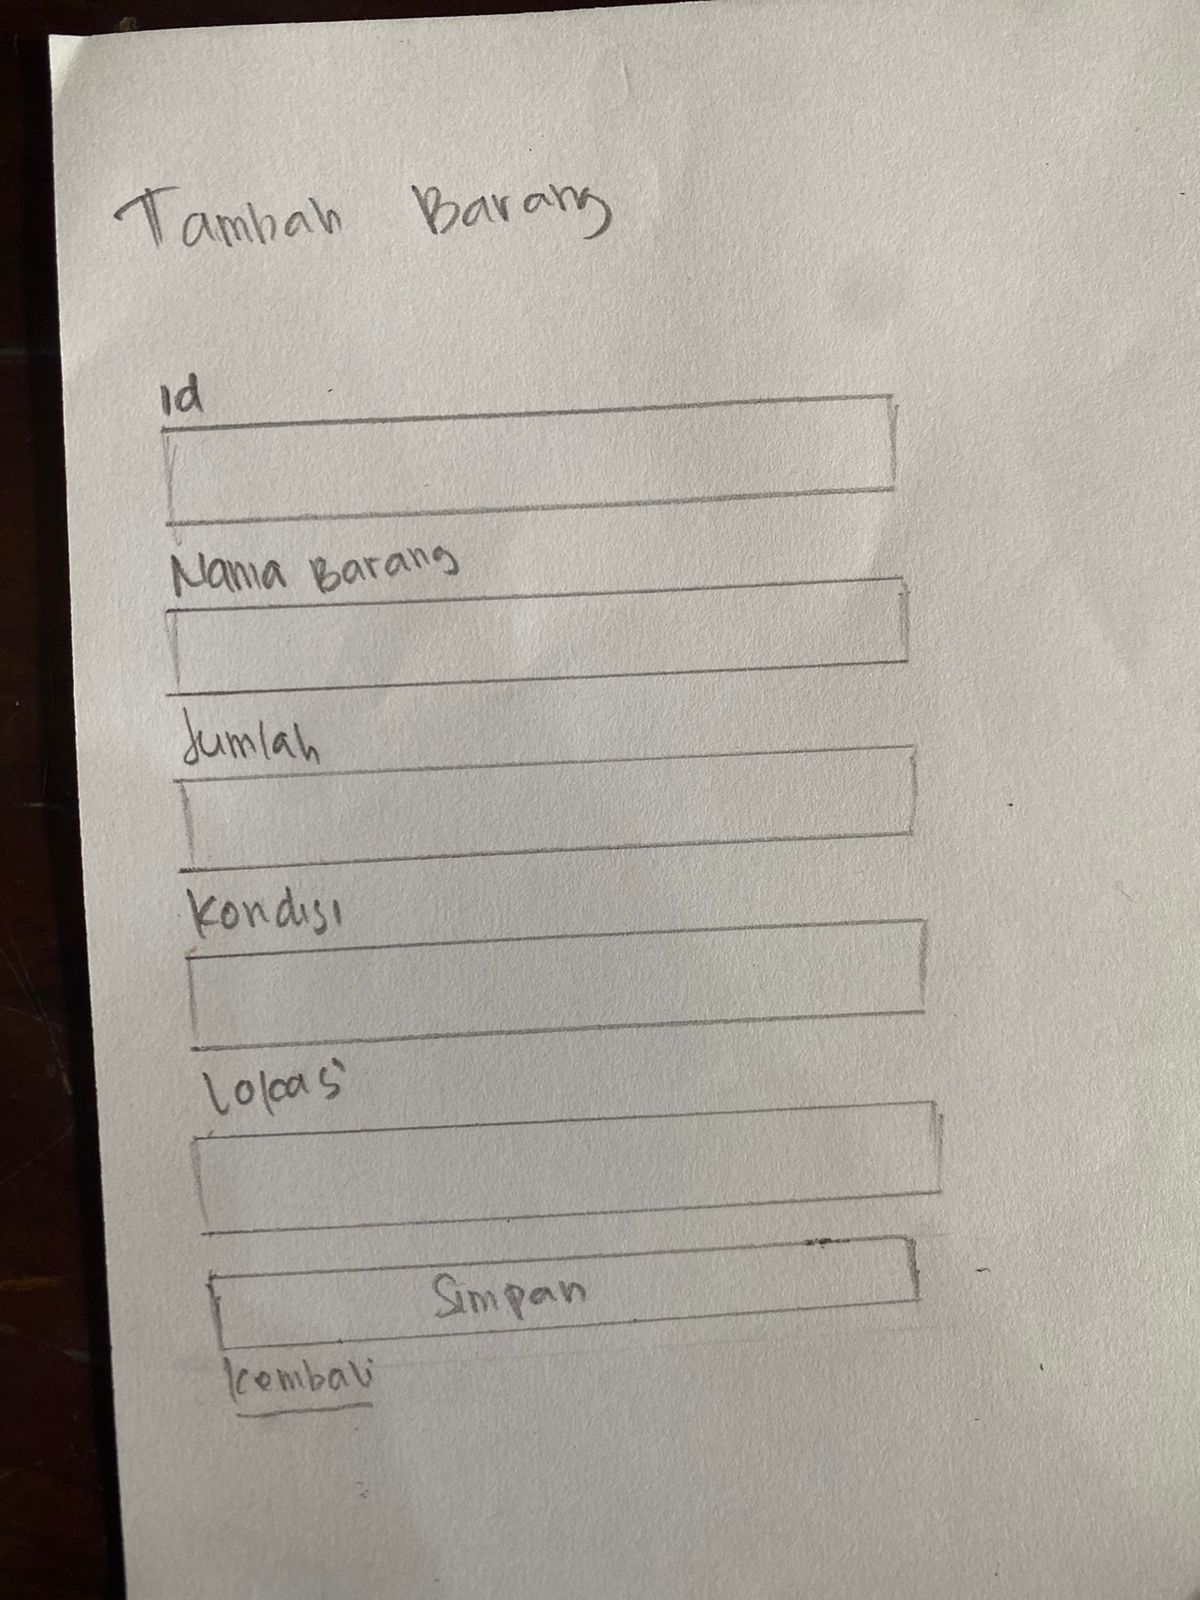 Tambah Barang
Id
Nama Barang
Jumlah
Kondisi
Lokasi
Simpan
Kembali